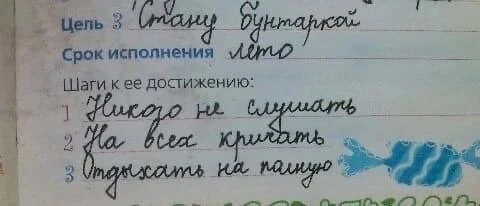 Цель 3 Стану бунтаркой
Срок исполнения лето
Шаги к ее достижению:
1 Никого не слушать
2 На всех кричать
3 Отдыхать на полную